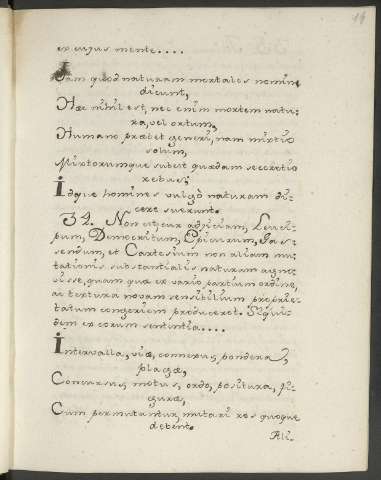 14
ex cujus mente....
Jam quod naturam mortales nomine
dicunt,
Hæc nihil est, nec enim mortem natu-
ra, vel ortum,
Humano præbet generi, nam mixtio
solum,
Mixtorumque subest quædam secretio
rebus;
Idque homines vulgò naturam di-
cere suerunt.
34. Non citeur adjiciam, Leucip-
pum, Democritum, Epicurum, Gas-
sendum, et Cartesium non aliam mu-
tationis substantialis naturam agno-
visse, quam quæ ex vario partium ordine,
ac textura novam sensibilium proprie-
tatum congeriem produceret. Siqui-
dem ex eorum sententia....
Intervalla, viæ, connexus, pondera,
plagæ,
Concursus, motus, ordo, positura, fi-
guræ,
Cum permutantur, mutari res quoque
debent.